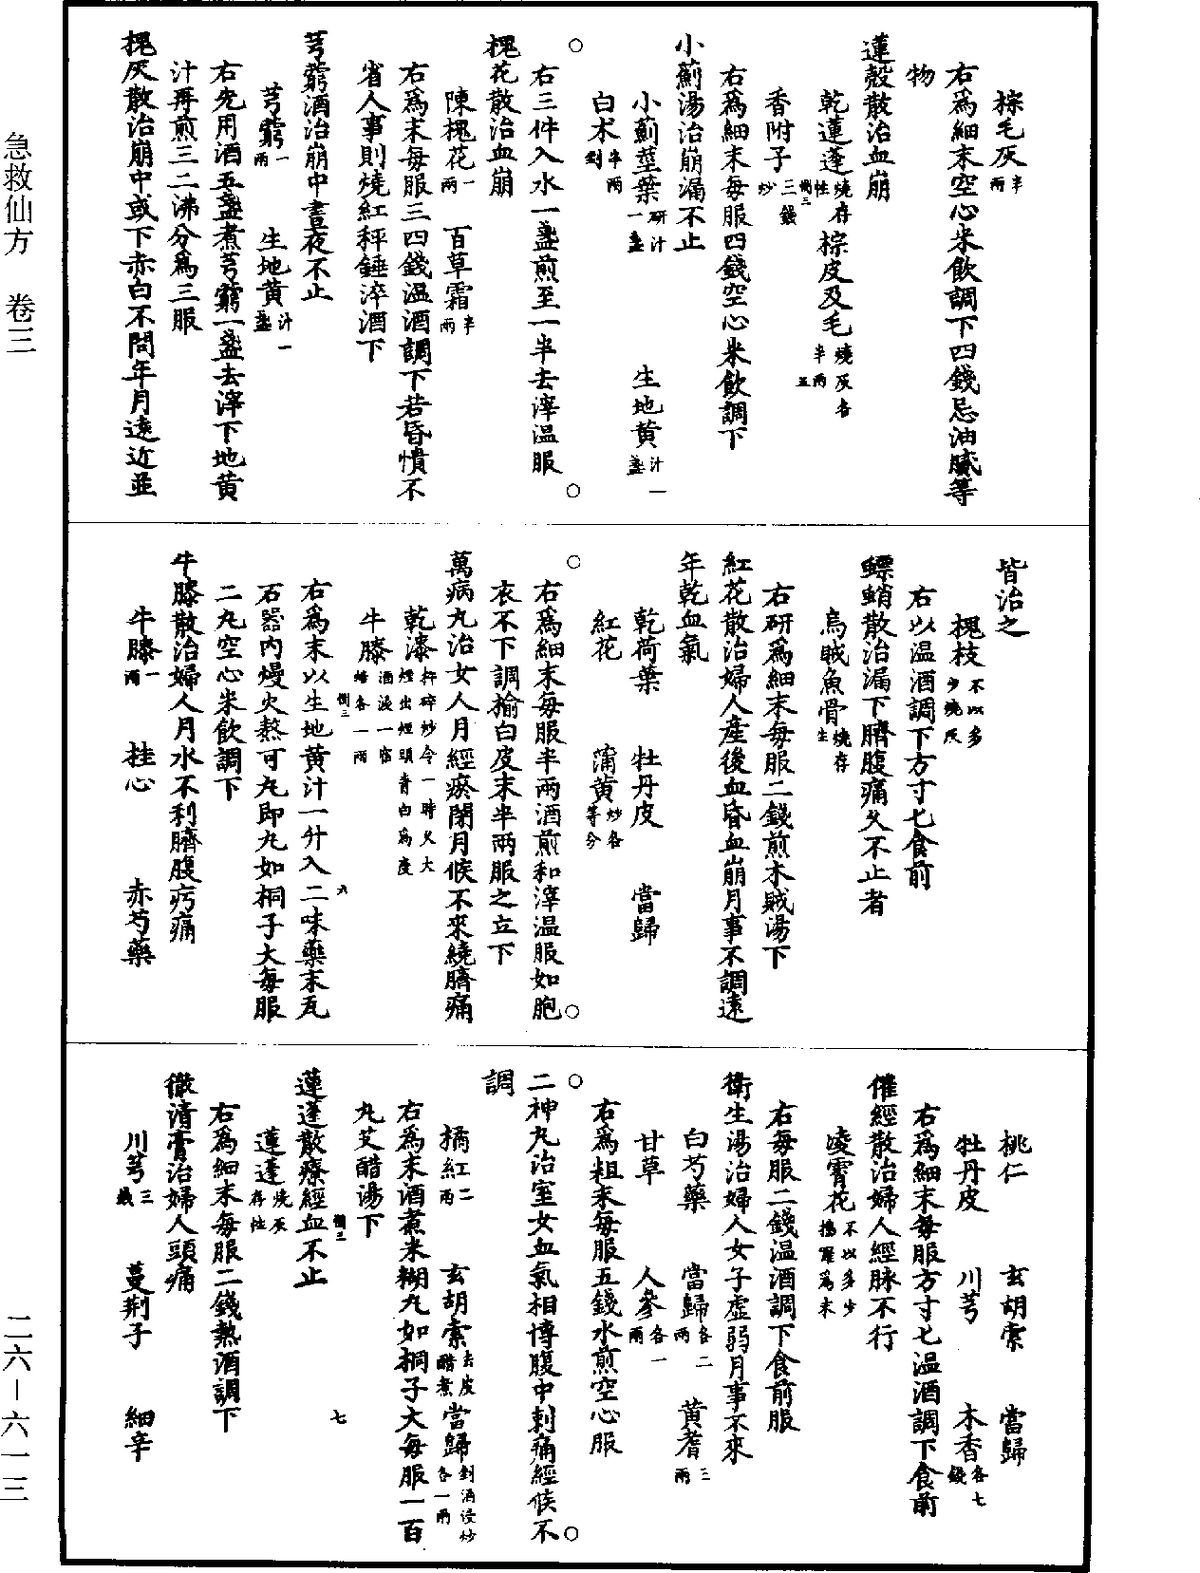 棕毛灰半兩
右爲細末空心米飲調下四錢忌油膩等
物
蓮殼散治血崩
乾蓮蓬燒存性 棕皮及毛燒灰各半兩
香附子三錢炒
右爲細末每服四錢空心米飲調下
小薊湯治崩漏不止
小薊莖葉研汁一盞 生地黃汁一盞
白朮半兩剉
右三件入水一盞煎至一半去滓温服
槐花散治血崩
陳槐花一兩 百草霜半兩
右爲末每服三四錢温酒調下若昏憒不
省人事則燒紅秤錘淬酒下
芎藭酒治崩中晝夜不止
芎藭一兩 生地黃汁一盞
右先用酒五盞煮芎藭一盞去滓下地黃
汁再煎三二沸分爲三服
槐灰散治崩中或下赤白不問年月遠近並
皆治之
槐枝不以多少燒灰
右以温酒調下方寸匕食前
螵蛸散治漏下臍腹痛久不止者
烏賊魚骨燒存性
右研爲細末每服二錢煎木賊湯下
紅花散治婦人產後血昏血崩月事不調遠
年乾血氣
乾荷葉 牡丹皮 當歸
紅花 蒲黃炒各等分
右爲細末每服半兩酒煎和滓温服如胞
衣不下調榆白皮末半兩服之立下
萬病丸治女人月經瘀閉月候不來繞臍痛
乾漆杵碎炒令一時久大煙出煙頭青白爲度
牛膝酒浸一宿焙各一兩
右爲末以生地黃汁一升入二味藥末瓦
石器内熳火熬可丸即丸如桐子大每服
二丸空心米飲調下
牛膝散治婦人月水不利臍腹㽲痛
牛膝一兩 桂心 赤芍藥
桃仁 玄胡索 當歸
牡丹皮 川芎 木香各七錢
右爲細末每服方寸匕温酒調下食前
催經散治婦人經脉不行
凌霄花不以多少擣羅爲末
右每服二錢温酒調下食前服
衛生湯治婦人女子虚弱月事不來
白芍藥 當歸各二兩 黃耆三兩
甘草 人參各一兩
右爲粗末每服五錢水煎空心服
二神丸治室女血氣相搏腹中刺痛經候不
調
橘紅二兩 玄胡索去皮醋煮 當歸剉酒浸炒各一兩
右爲末酒煮米糊丸如桐子大每服一百
丸艾醋湯下
蓮蓬散療經血不止
蓮蓬燒灰存性
右爲細末每服二錢熱酒調下
徹清膏治婦人頭痛
川芎三錢 蔓荆子 細辛
急救仙方 卷三
二六-六一三